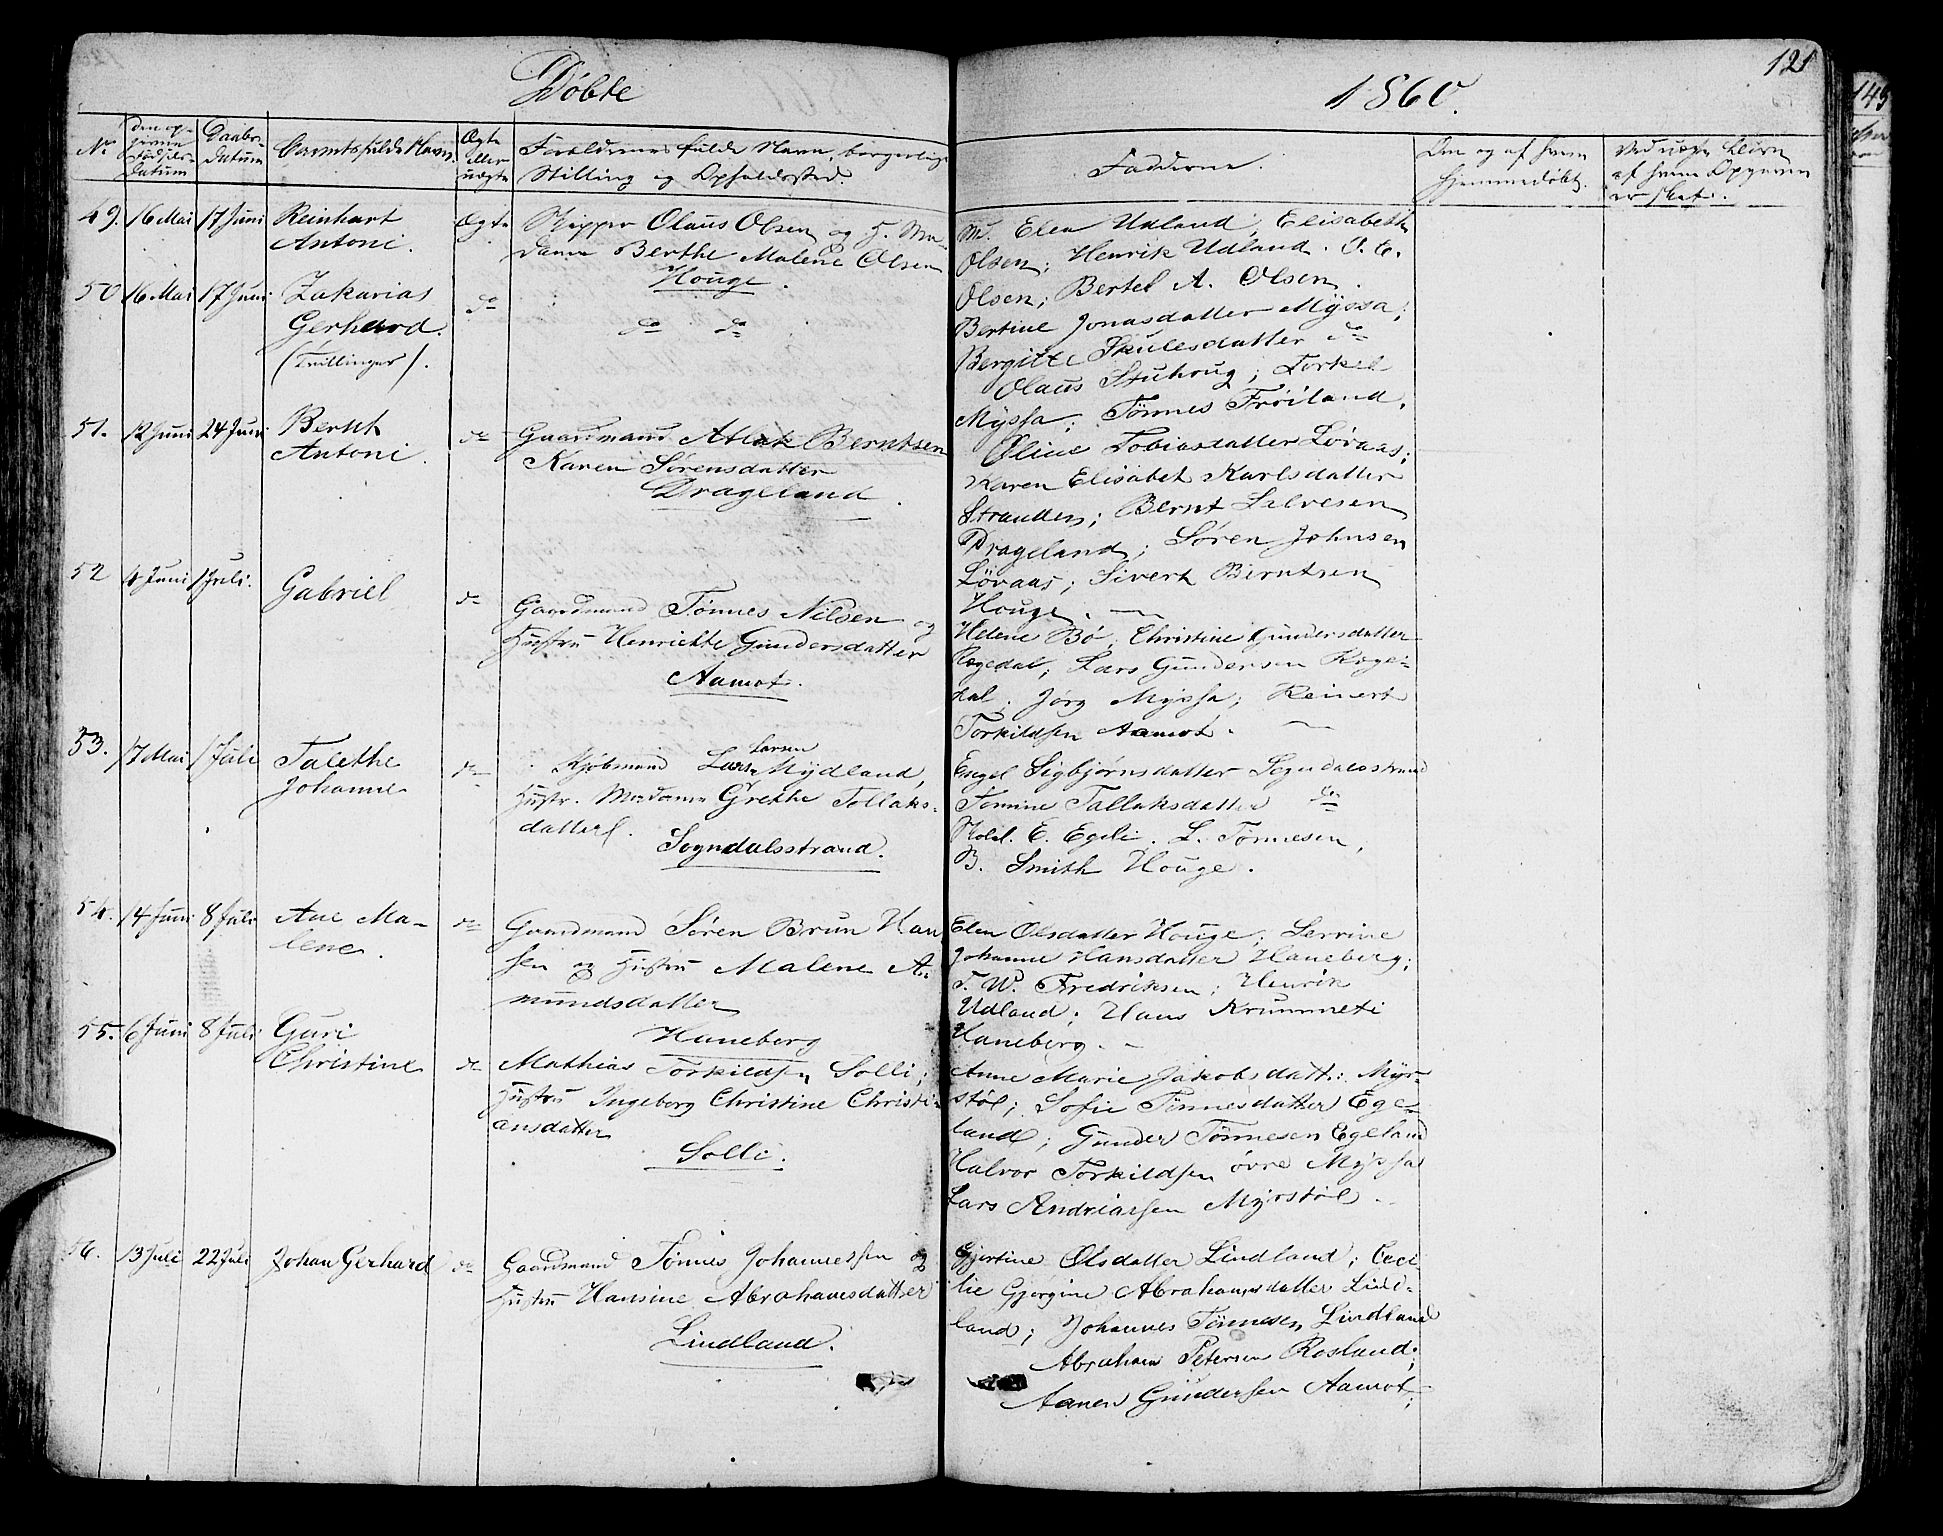 Døbte
1860.
121
149
No
den op-
givne
Fødsels-
Datum
Daabs-
Datum
Barnets fulde Navn.
Ægte
eller
uægte
Forældrenes fulde Navn, borgerlige
Stilling og Opholdssted.
Fadderne
Om og af hvem
hjemmedøbt.
Ved uægte Børn
af hvem Opgaven
er skeet.
49. 16 Mai 17 Juni Reinhart
Antoni.
Ægte
Skipper Olaus Olsen og H. Ma-
dame Berthe Malene Olsen
Houge.
Md. Elen Udland, Elisabeth
Olsen; Henrik Udland. O. E.
Olsen; Bertel A. Olsen.
50 16 Mai 17 Juni Zakarias
Gerhard.
(Tvillinger).
do
do do
Bertine Jonasdatter Myssa;
Bergitte Skulesdatter do
Olaus Stuhoug; Torkel
Myssa; Tønnes Frøiland.
51. 12 Juni 24 Juni Bernt
Antoni.
do
Gaardmand Atlak Berntsen
Karen Sørensdatter
Drageland.
Oline Tobiasdatter Løvaas;
Karen Elisabet Karlsdatter
Stranden; Bernt Silvesen
Drageland; Søren Johnsen
Løvaas; Sivert Berntsen
Houge.
52 4 Juni 1 Juli. Gabriel
do
Gaardmand Tønnes Nilsen og
Hustru Henriette Gundersdatter
Aamot.
Helene Bø, Christine Gundersdatter
Rægedal; Lars Gundersen Ræge-
dal; Jørg Myssa; Reinert
Torkildsen Aamot.
53. 17 Mai 1 Juli Talethe
Johanne
do
Larsen
Kjøbmand Lars Mydland,
Hustr. Madame Grethe Tollaks-
datter.
Sogndalsstrand.
Engel Sigbjørnsdatter Sogndalsstrand
Tomine Tallaksdatter do
E. Egeli. L. Tønnesen,
B. Smith Houge.
54. 14 Juni 8 Juli Ane Ma-
lene.
do
Gaardmand Søren Brun Han
sen og Hustru Malene A-
mundsdatter
Haneberg
Elen Olsdatter Houge; Serrine
Johanne Hansdatter Haneberg;
T. W. Fredriksen; Henrik
Udland; Hans Krummeti
Haneberg.
55. 6 Juni 8 Juli Guri
Christine
do
Mathias Torkildsen Solli;
Hustru Ingeborg Christine Christi-
ansdatter
Solli.
Anne Marie Jakobsdatt: Myr-
støl; Sofie Tønnesdatter Ege-
land; Gunder Tønnesen Egeland
Halvor Torkildsen øvre Myssa
Lars Andreassen Myrstøl.
56. 13 Juli 22 Juli Johan Gerhard
do
Gaardmand Tønnes Johannessen og
Hustru Hansine Abrahamsdatter
Lindland.
Gjertine Olsdatter Lindland; Ceci
lie Gjørgine Abrahamsdatter Lind-
land; Johannes Tønnesen Lindland
Abraham Petersen Rosland;
Aanen Gundersen Aamot;